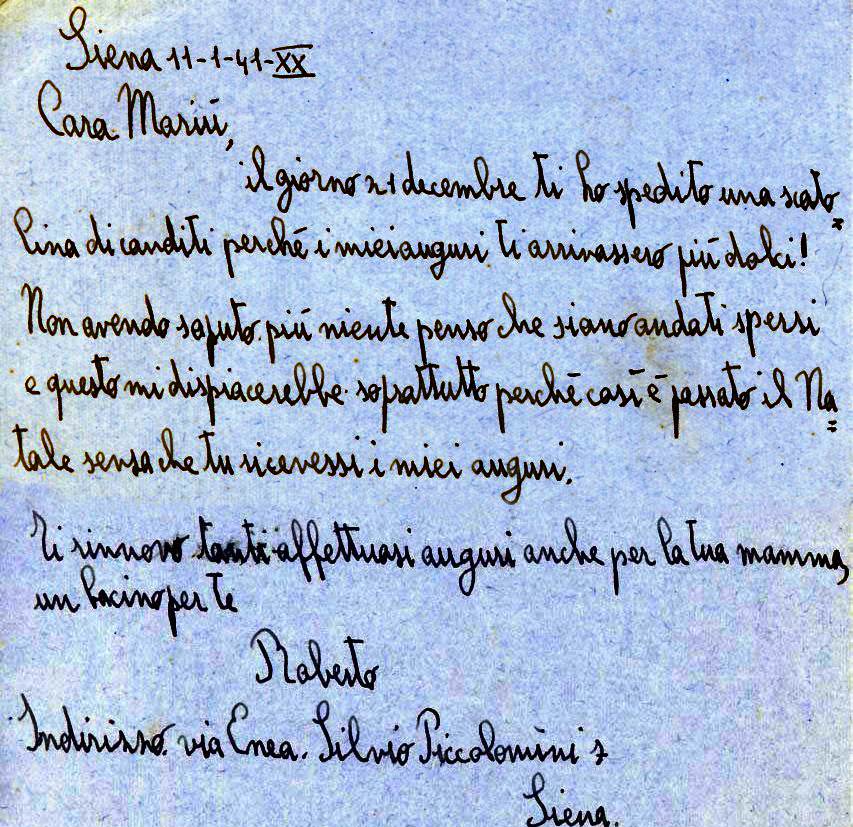 Siena 11-1-41-XX
Cara Mariù,
il giorno 21 decembre ti ho spedito una scato=
lina di canditi perché i miei auguri ti arrivassero più dolci!
Non avendo saputo più niente penso che siano andati spersi
e questo mi dispiacerebbe soprattutto perché così è passato il Na=
tale senza che tu ricevessi i miei auguri.
Ti rinnovo tanti affettuosi auguri anche per la tua mamma,
un bacino per te
Roberto
Indirizzo. via Enea. Silvio Piccolomini 7
Siena.